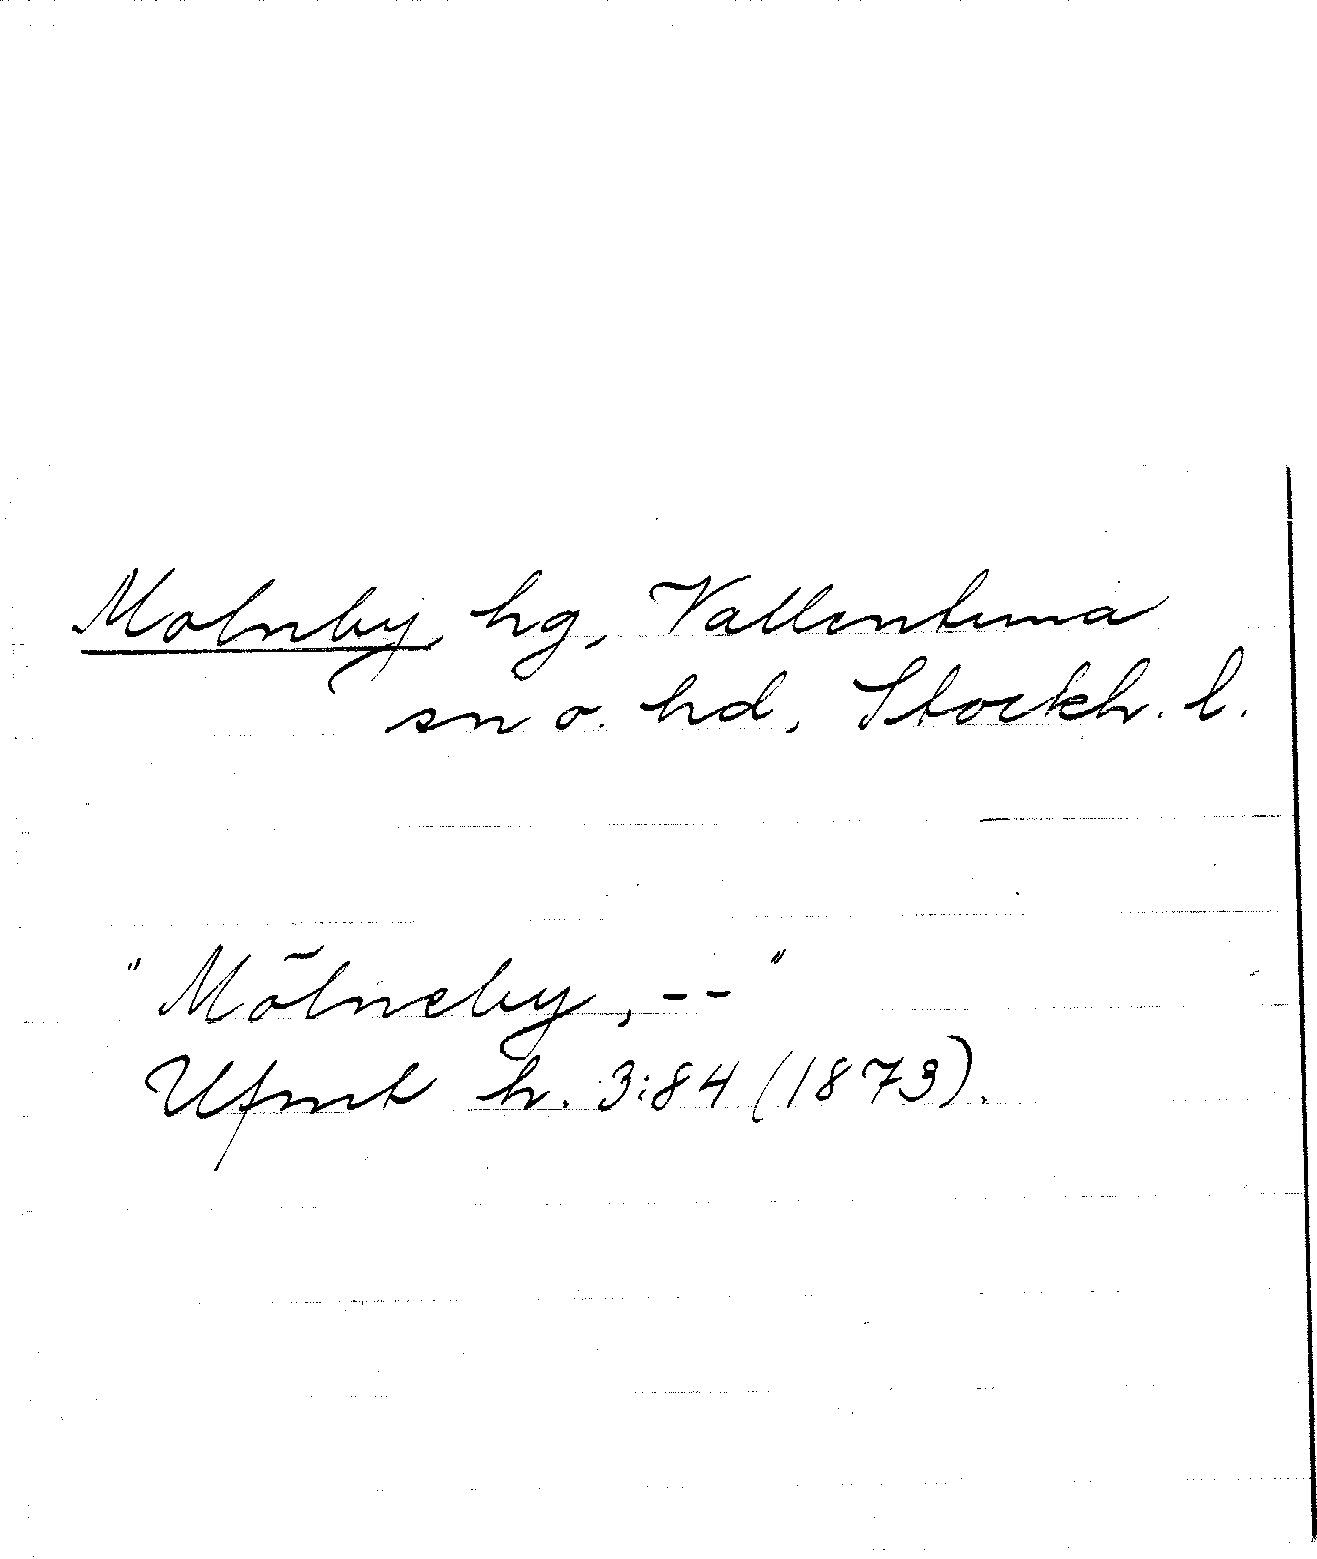 Molnby hg, Vallentuna
sn o. hd, Stockh. l.
"Mölneby, -- "
Ufmt h. 3:84 (1873).